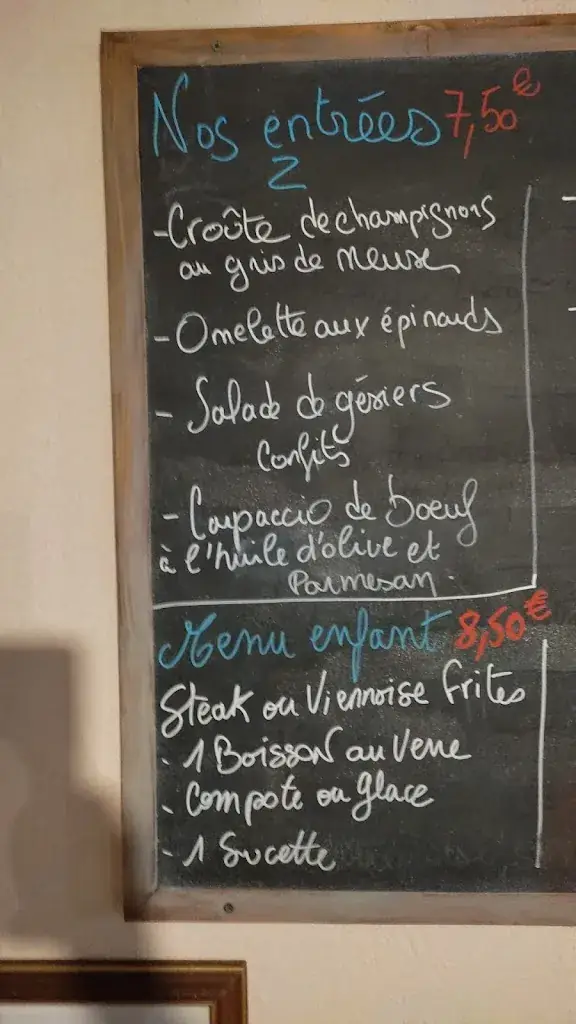 Nos entrées 7,50€
- Croûte de champignons
au gris de Meuse
- Omelette aux épinards
- Salade de gésiers
Confits
- Carpaccio de boeuf
à l'huile d'olive et
Parmesan.
Menu enfant 8,50€
Steak ou Viennoise frites
- 1 Boisson au Verre
- Compote ou glace
- 1 Sucette